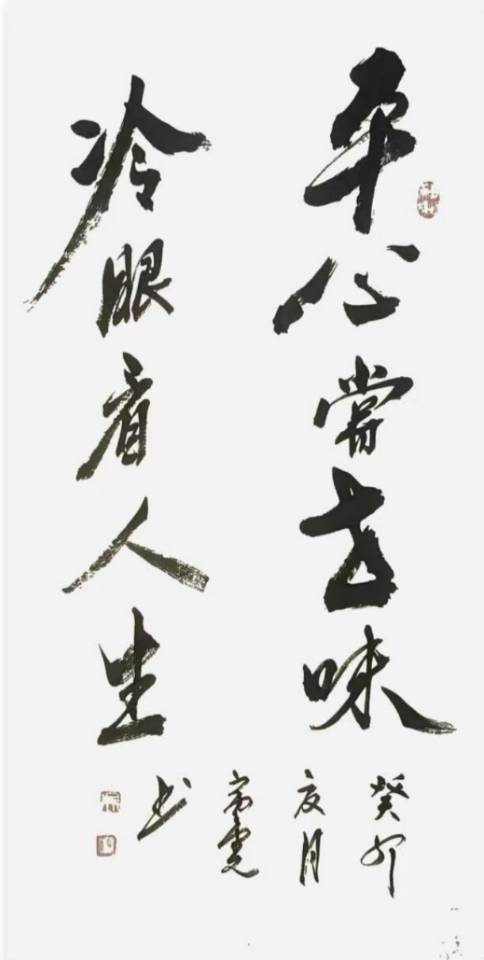 平心嘗世味
冷眼看人生
癸卯
夏月
书